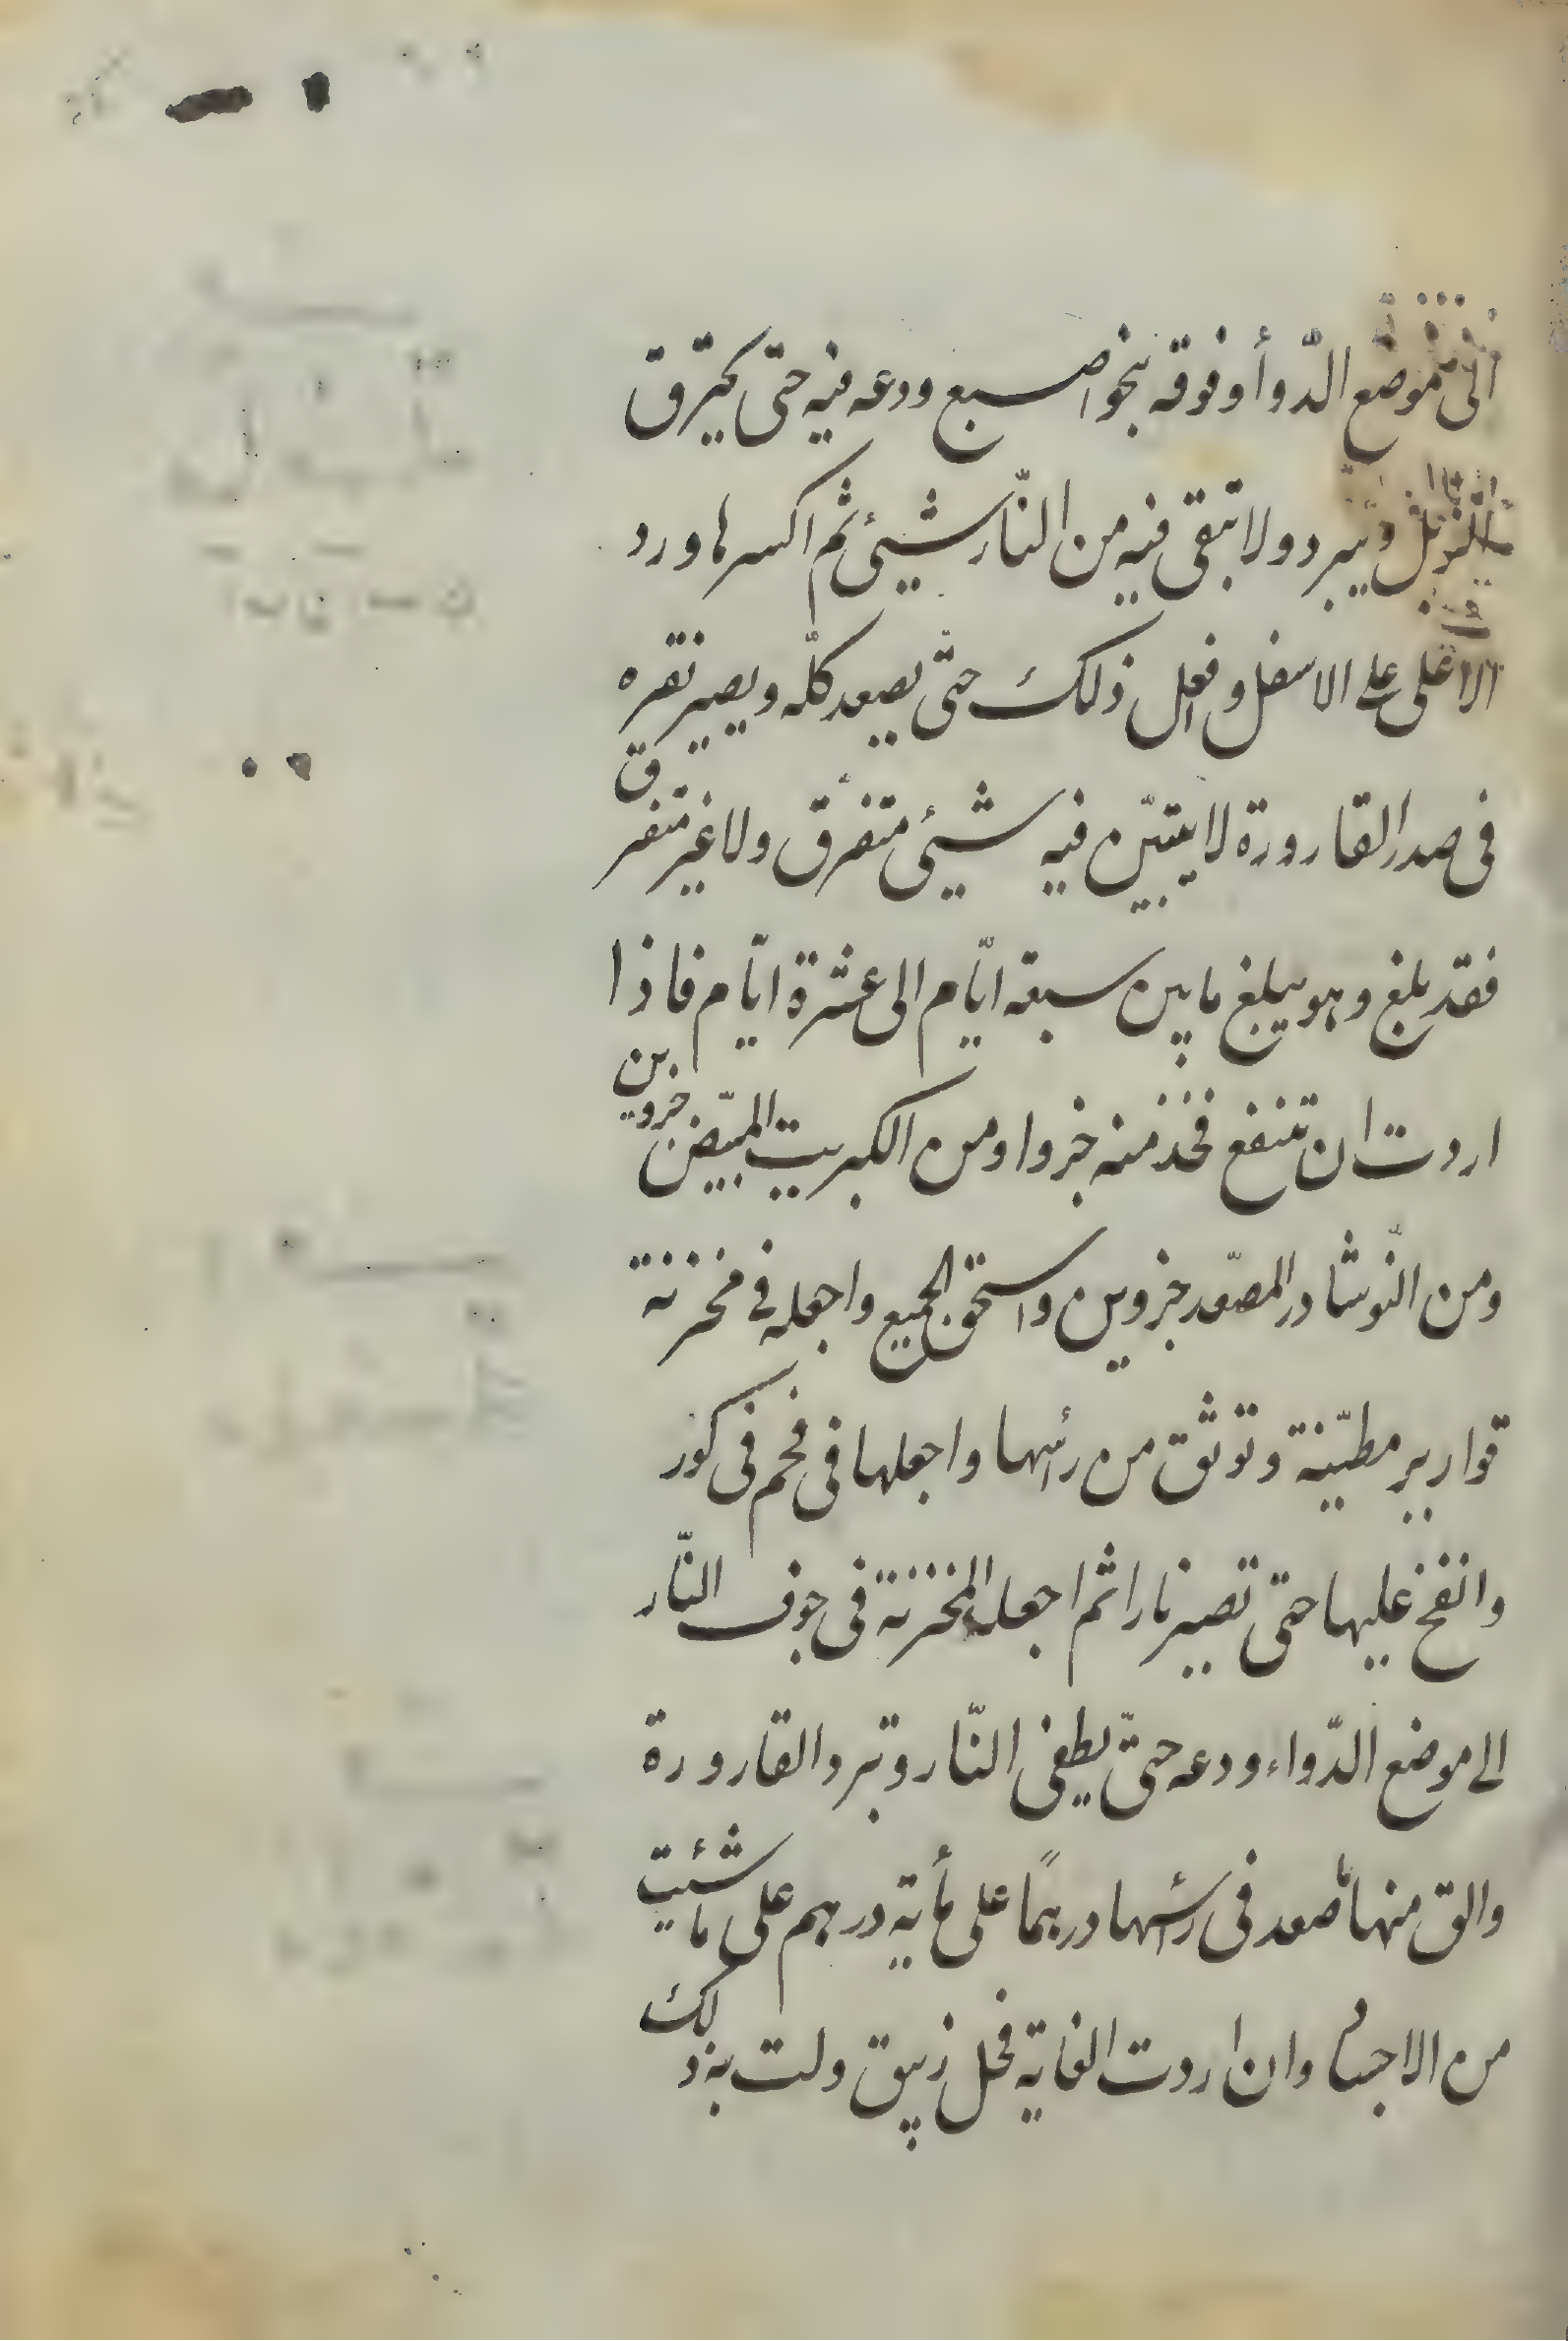 الى موضع الدّوأ وفوقه بنحو اصبع ودعه فيه حتى يحترق
الزبل ويبرد ولا تبقى فيه من النّار شيئ ثم اكسرها ورد
الاعلى على الاسفل وافعل ذلك حتّى يصعد كلّه ويصير نقره
فى صدر القارورة لا يتبيّن فيه شيئ متفرّق ولا غير متفرق
فقد بلغ وهو يبلغ ما بين سبعة ايّام الى عشرة ايّام فاذا
اردت ان تنتفع فخذ منه جزوا ومن الكبريت المبيّض جزوين
ومن النّوشادر المصعّد جزوين واسحق الجميع واجعله فى مخزنة
قوارير مطيّنة وتوثق من رأسها واجعلها فى فحم فى كور
وانفخ عليها حتى تصير نارا ثم اجعل المخزنة فى جوف النّار
الى موضع الدّواء ودعه حتّى يطفى النّار وتبرد القارورة
والق منها ما صعد فى رأسها درهمًا على مأية درهم على ما شئت
من الاجساد وان اردت الغاية فحل زيبق ولت به ذلك